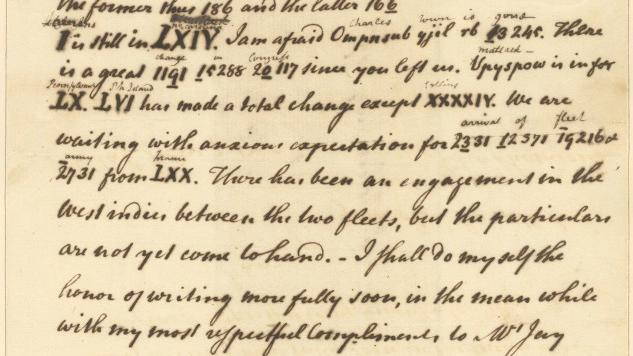 the former thus 186 and the latter 166
Charles town is gone
I is still in LXIV. I am afraid Ompnsub yjil rb 13245. There
change in Congress matlack
is a great 1191 15288 20117 since you left us. Vpyspow is in for
Rh Island Collins
LX. LVI has made a total change except XXXXIV. We are
arrival of fleet
waiting with anxious expectation for 2331 12571 19216 &
army france
2731 from LXX. There has been an engagement in the
West indies between the two fleets, but the particulars
are not yet come to hand. - I shall do myself the
honor of writing more fully soon, in the mean while
with my most respectful Compliments to Mrs Jay